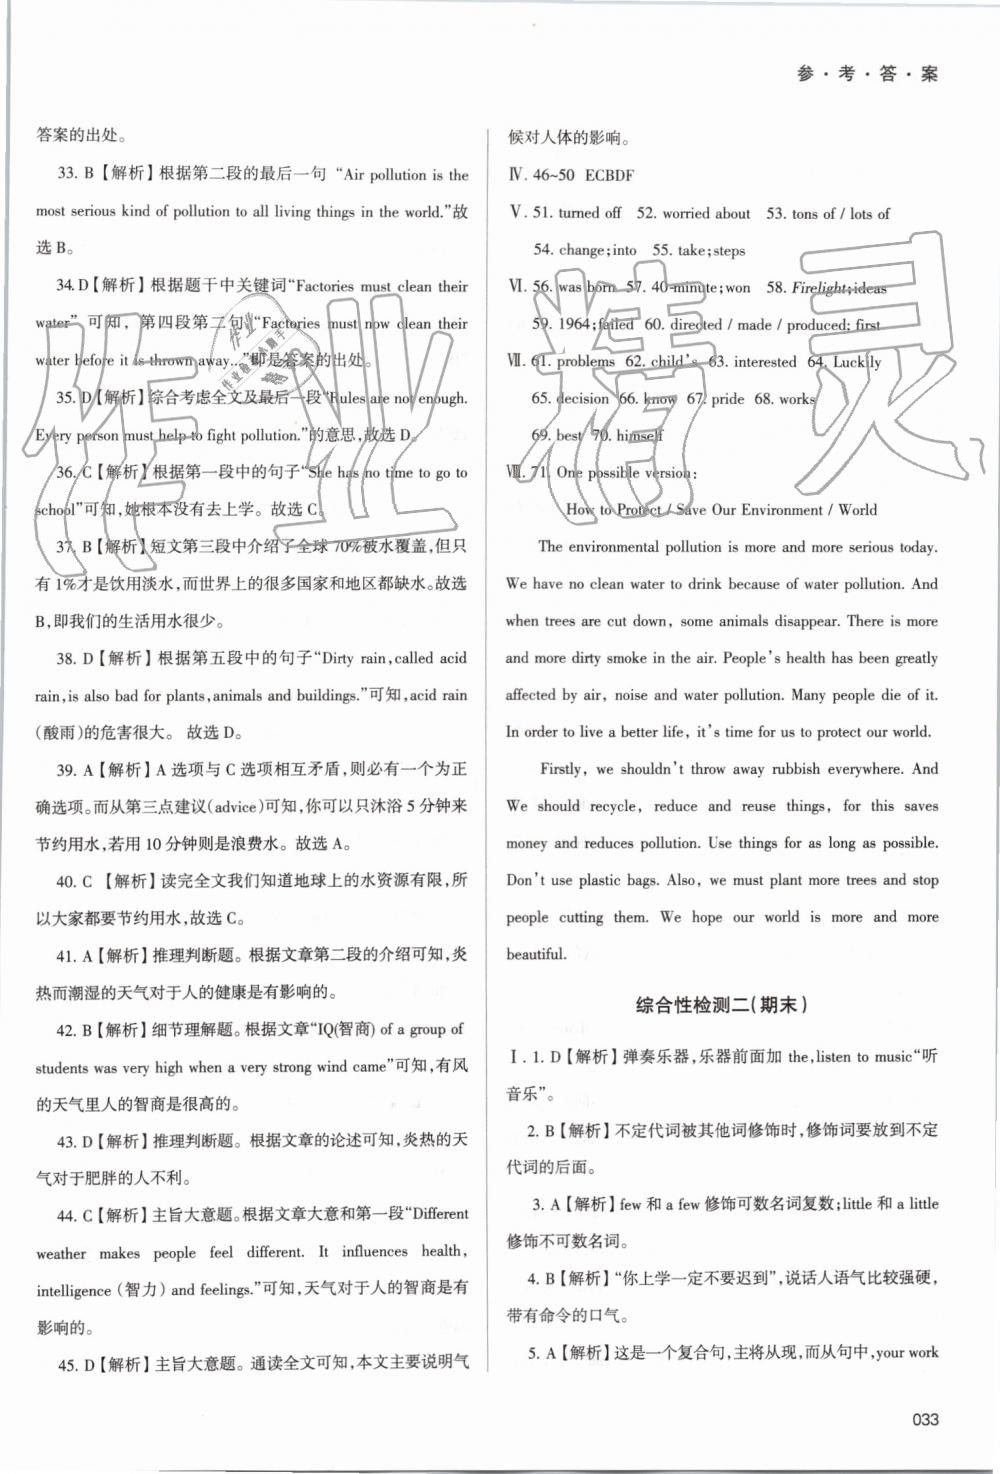 参·考·答·案
答案的出处。
33. B【解析】根据第二段的最后一句 “Air pollution is the
most serious kind of pollution to all living things in the world.”故
选 B。
34. D【解析】根据题干中关键词“Factories must clean their
water” 可知，第四段第二句“Factories must now clean their
water before it is thrown away...”即是答案的出处。
35. D【解析】综合考虑全文及最后一段“Rules are not enough.
Every person must help to fight pollution.”的意思,故选 D。
36. C【解析】根据第一段中的句子“She has no time to go to
school”可知,她根本没有去上学。故选 C。
37. B【解析】短文第三段中介绍了全球 70%被水覆盖,但只
有 1%才是饮用淡水,而世界上的很多国家和地区都缺水。故选
B,即我们的生活用水很少。
38. D【解析】根据第五段中的句子“Dirty rain,called acid
rain,is also bad for plants,animals and buildings.”可知,acid rain
(酸雨)的危害很大。 故选 D。
39. A【解析】A 选项与 C 选项相互矛盾,则必有一个为正
确选项。而从第三点建议(advice)可知,你可以只沐浴 5 分钟来
节约用水,若用 10 分钟则是浪费水。故选 A。
40. C 【解析】读完全文我们知道地球上的水资源有限,所
以大家都要节约用水,故选 C。
41. A【解析】推理判断题。根据文章第二段的介绍可知,炎
热而潮湿的天气对于人的健康是有影响的。
42. B【解析】细节理解题。根据文章“IQ(智商) of a group of
students was very high when a very strong wind came”可知,有风
的天气里人的智商是很高的。
43. D【解析】推理判断题。根据文章的论述可知,炎热的天
气对于肥胖的人不利。
44. C【解析】主旨大意题。根据文章大意和第一段“Different
weather makes people feel different. It influences health,
intelligence (智力) and feelings.”可知,天气对于人的智商是有
影响的。
45. D【解析】主旨大意题。通读全文可知,本文主要说明气
候对人体的影响。
Ⅳ. 46~50 ECBDF
Ⅴ. 51. turned off 52. worried about 53. tons of / lots of
54. change;into 55. take;steps
Ⅵ. 56. was born 57. 40-minute;won 58. Firelight;ideas
59. 1964;failed 60. directed / made / produced; first
Ⅶ. 61. problems 62. child’s 63. interested 64. Luckily
65. decision 66. know 67. pride 68. works
69. best 70. himself
Ⅷ. 71. One possible version:
How to Protect / Save Our Environment / World
The environmental pollution is more and more serious today.
We have no clean water to drink because of water pollution. And
when trees are cut down, some animals disappear. There is more
and more dirty smoke in the air. People’s health has been greatly
affected by air, noise and water pollution. Many people die of it.
In order to live a better life, it’s time for us to protect our world.
Firstly, we shouldn’t throw away rubbish everywhere. And
We should recycle, reduce and reuse things, for this saves
money and reduces pollution. Use things for as long as possible.
Don’t use plastic bags. Also, we must plant more trees and stop
people cutting them. We hope our world is more and more
beautiful.
综合性检测二(期末)
Ⅰ. 1. D【解析】弹奏乐器,乐器前面加 the,listen to music“听
音乐”。
2. B【解析】不定代词被其他词修饰时,修饰词要放到不定
代词的后面。
3. A【解析】few 和 a few 修饰可数名词复数;little 和 a little
修饰不可数名词。
4. B【解析】“你上学一定不要迟到”,说话人语气比较强硬,
带有命令的口气。
5. A【解析】这是一个复合句,主将从现,而从句中,your work
033
作业精灵